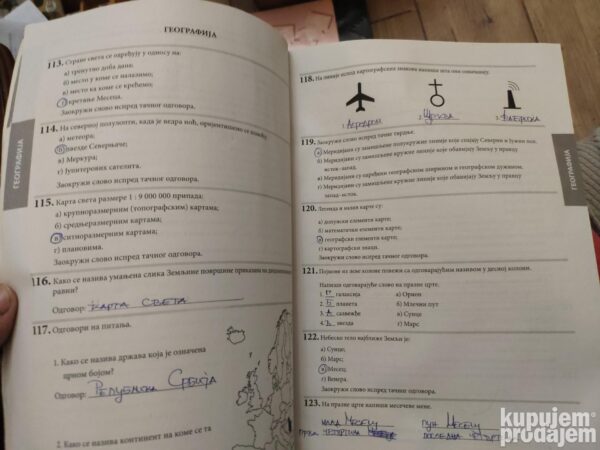 ГЕОГРАФИЈА
113. Стране света се одређују у односу на:
а) тренутно доба дана;
б) место у коме се налазимо;
в) место ка коме се крећемо;
г) кретање Месеца.
Заокружи слово испред тачног одговора.
114. На северној полулопти, када је ведра ноћ, оријентишемо се помоћу
а) метеора;
б) звезде Северњаче;
в) Меркура;
г) Јупитерових сателита.
Заокружи слово испред тачног одговора.
115. Карта света размере 1 : 9 000 000 припада:
а) крупноразмерним (топографским) картама;
б) средњеразмерним картама;
в) ситноразмерним картама;
г) плановима.
Заокружи слово испред тачног одговора.
116. Како се назива умањена слика Земљине површине приказана на
равни?
Одговор: КАРТА СВЕТА
117. Одговори на питања.
1. Како се назива држава која је означена
црном бојом?
Одговор: РЕПУБЛИКА СРБИЈА
2. Како се назива континент на коме се та
ГЕОГРАФИЈА
118. На линији испод картографских знакова напиши шта они означавају.
АЕРОДРОМ ЦРКВА
119. Заокружи слово испред тачне тврдње.
а) Меридијани су замишљене полукружне линије које спајају Северни и Јужни пол.
б) Меридијани су замишљене кружне линије које обавијају Земљу у правцу
исток-запад.
в) Меридијани се називају географском ширином и географском дужином.
г) Меридијани су замишљене кружне линије које обавијају Земљу у правцу
запад-исток.
120. Легенда и назив карте су:
а) допунски елементи карте;
б) математички елементи карте;
в) географски елементи карте;
г) картографски знаци.
Заокружи слово испред тачног одговора.
121. Појмове из леве колоне повежи са одговарајућим називом у десној колони.
Напиши одговарајуће слово на празне црте.
1. галаксија а) Орион
2. планета б) Млечни пут
3. А сазвежђе в) Сунце
4. звезда г) Марс
122. Небеско тело најближе Земљи је:
а) Сунце;
б) Марс;
в) Месец;
г) Венера.
Заокружи слово испред тачног одговора.
123. На празне црте напиши месечеве мене.
МЛАД МЕСЕЦ ПУН МЕСЕЦ
ПРВА ЧЕТВРТИНА ПОСЛЕДЊА
ГЕОГРАФИЈА
kupujem
prodajem